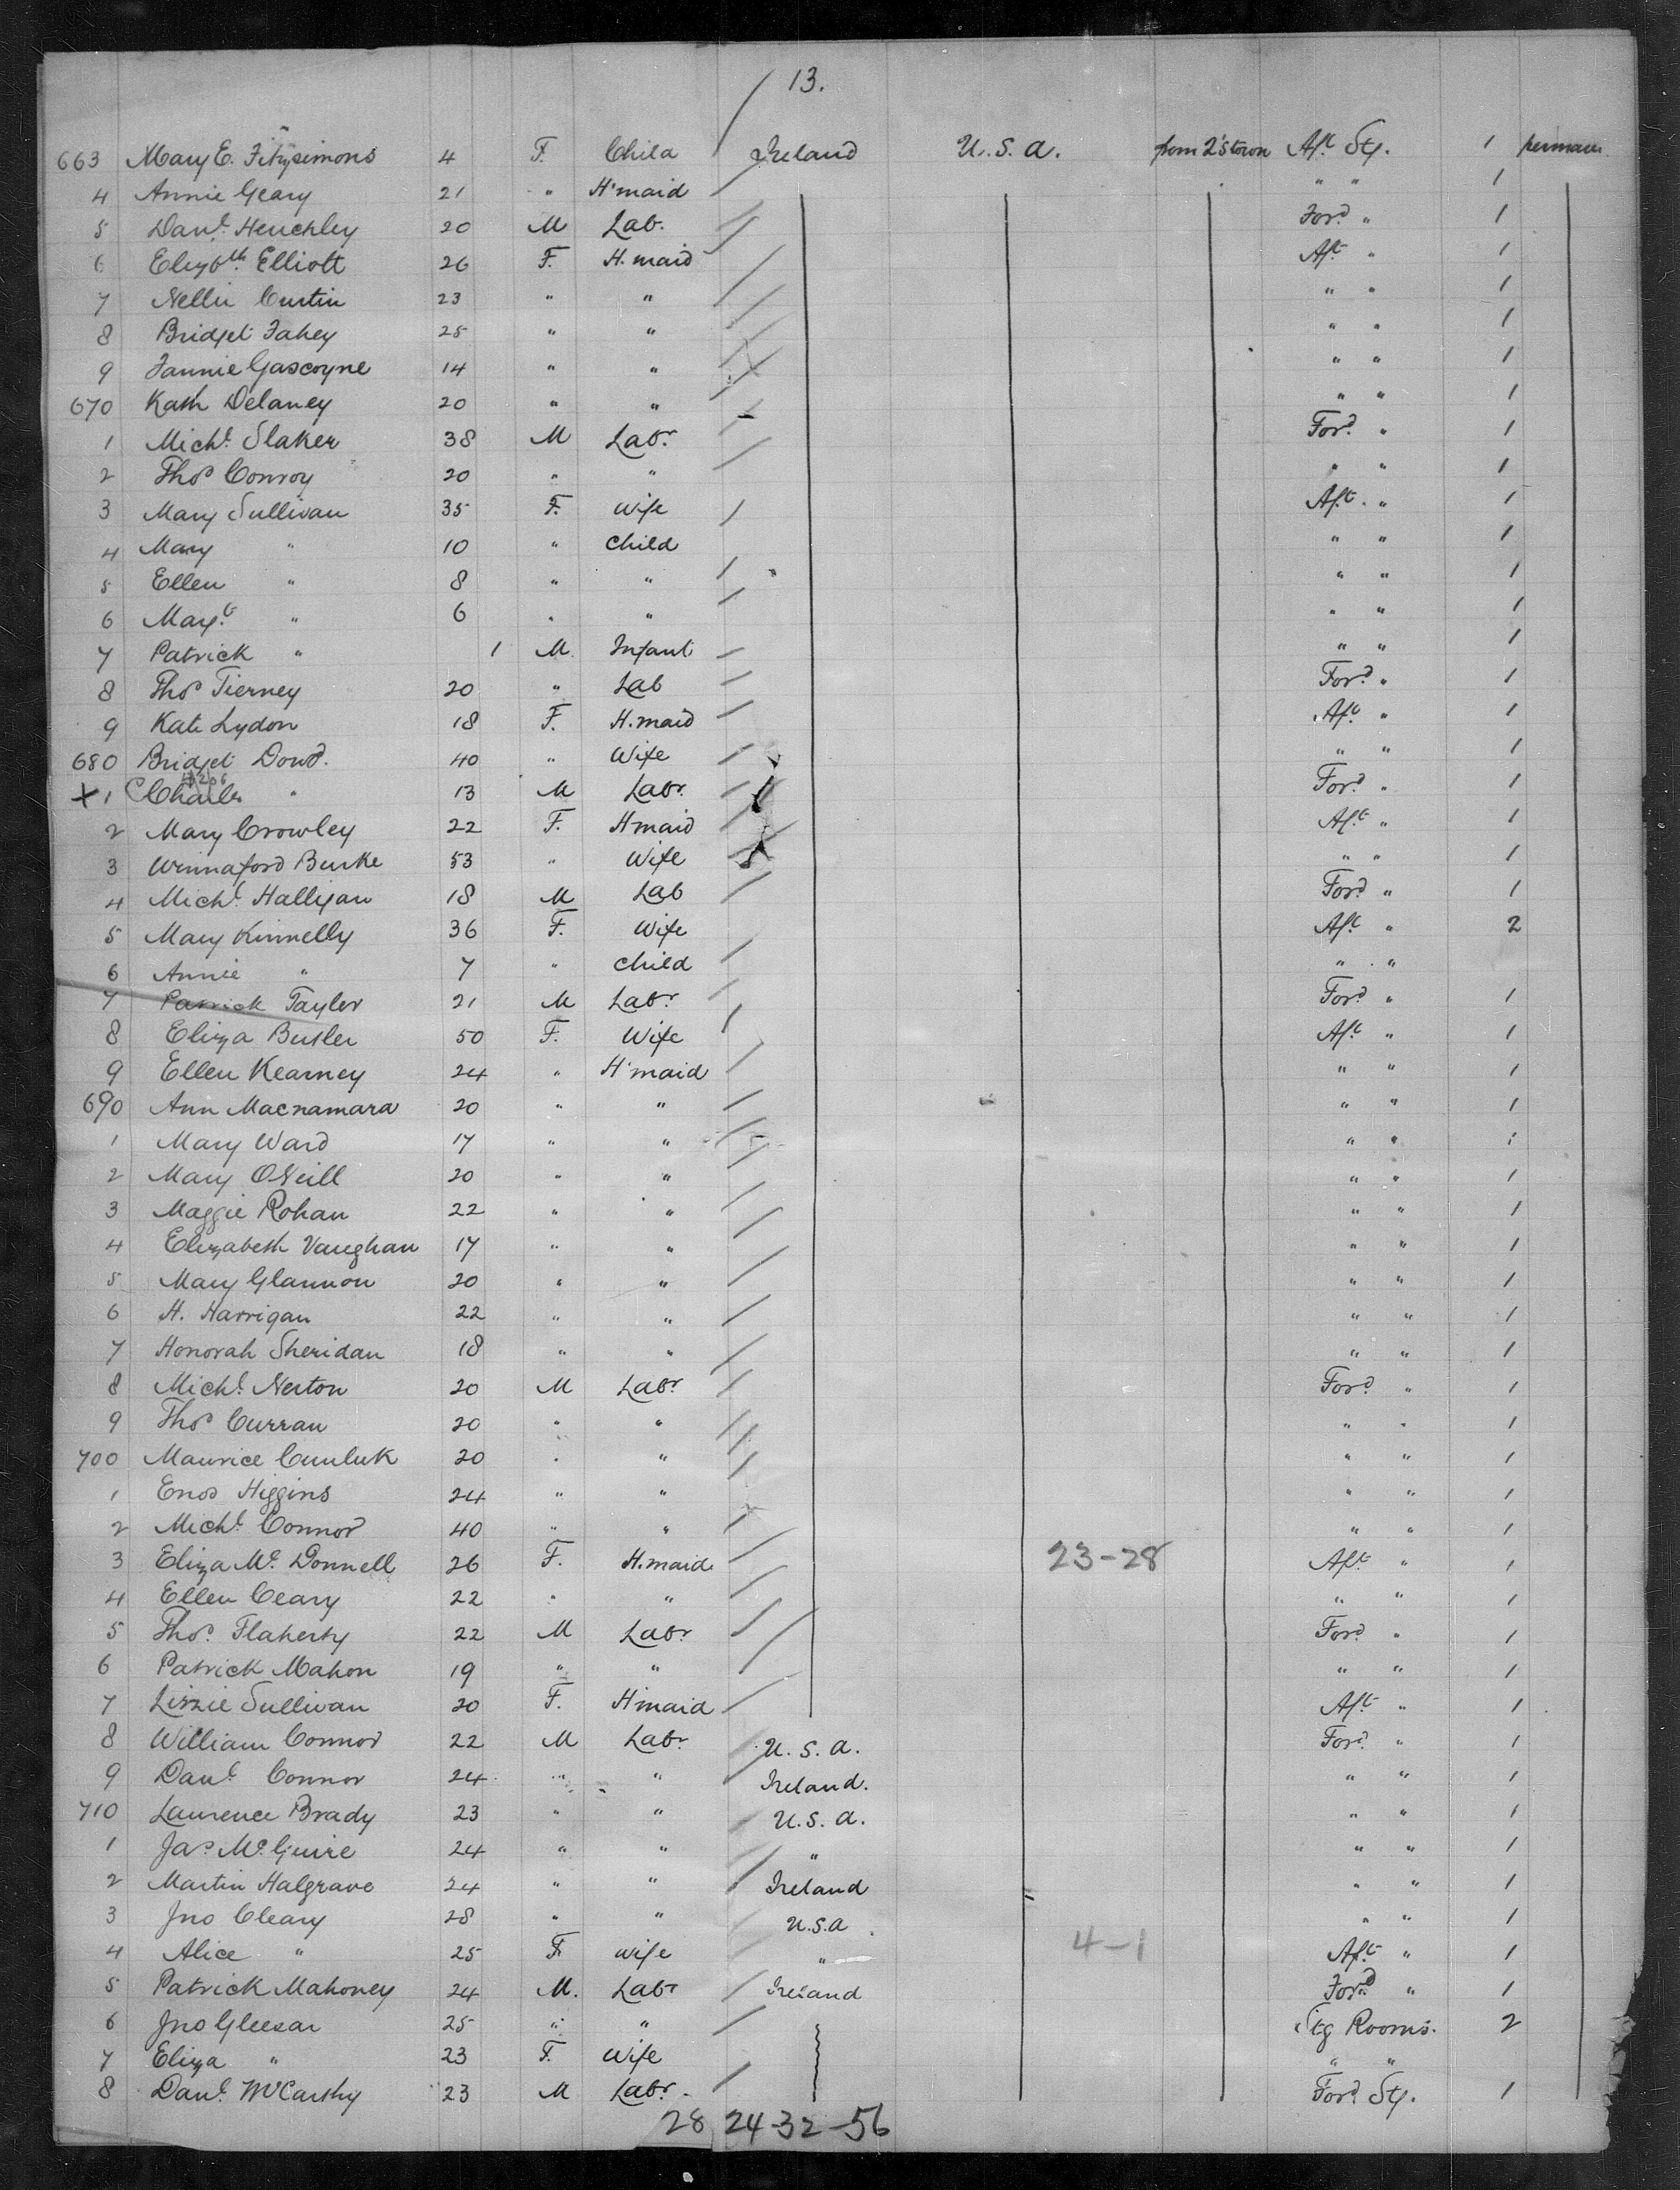 13.
663 Mary E. Fitzsimons 4 F. Child Ireland U.S.A. from Q'stown Aft Stg. 1
4 Annie Geary 21 " H'maid " " 1
5 Danl. Henchley 20 M Lab. Ford " 1
6 Elizbth. Elliott 26 F. H.maid Aft " 1
7 Nellie Curtin 23 " " " " 1
8 Bridget Fahey 25 " " " " 1
9 Fannie Gascoyne 14 " " " " 1
670 Kath Delaney 20 " " " " 1
1 Michl. Slaker 38 M Labr. Ford. " 1
2 Thos Conroy 20 " " " " 1
3 Mary Sullivan 35 F. Wife Aft. " 1
4 Mary " 10 " Child " " 1
5 Ellen " 8 " " " " 1
6 Margt. " 6 " " " " 1
7 Patrick " 1 M Infant " " 1
8 Thos Tierney 20 " Lab Ford. " 1
9 Kate Lydon 18 F. H.maid Aft " 1
680 Bridget Dowd. 40 " Wife " " 1
x 1 Charles " 13 M Labr. Ford. " 1
2 Mary Crowley 22 F. H'maid Aft " 1
3 Winnaford Burke 53 " Wife " " 1
4 Michl. Halligan 18 M Lab Ford " 1
5 Mary Kinnelly 36 F. Wife Aft " 2
6 Annie " 7 " Child " "
7 Patrick Taylor 21 M Labr. Ford. " 1
8 Eliza Butler 50 F. Wife Aft " 1
9 Ellen Kearney 24 " H'maid " " 1
690 Ann Macnamara 20 " " " " 1
1 Mary Ward 17 " " " " 1
2 Mary O'Neill 20 " " " " 1
3 Maggie Rohan 22 " " " " 1
4 Elizabeth Vaughan 17 " " " " 1
5 Mary Glannon 20 " " " " 1
6 H. Harrigan 22 " " " " 1
7 Honorah Sheridan 18 " " " " 1
8 Michl. Nerton 20 M Labr. Ford. " 1
9 Thos Curran 20 " " " " 1
700 Maurice 20 " " " " 1
1 Enos Higgins 24 " " " " 1
2 Michl. Connor 40 " " " " 1
3 Eliza Mc.Donnell 26 F. H.maid 23-28 Aft " 1
4 Ellen Ceary 22 " " " " 1
5 Thos. Flaherty 22 M Labr. Ford. " 1
6 Patrick Mahon 19 " " " " 1
7 Lizzie Sullivan 20 F. H'maid Aft " 1
8 William Connor 22 M Labr. U.S.A. Ford. " 1
9 Danl. Connor 24 " " Ireland. " " 1
710 Laurence Brady 23 " " U.S.A. " " 1
1 Jas. Mc.Guire 24 " " " " " 1
2 Martin Halgrave 24 " " Ireland " " 1
3 Jno Cleary 28 " " U.S.A " " 1
4 Alice " 25 F. Wife " 4-1 Aft " 1
5 Patrick Mahoney 24 M. Labr Ireland Ford. " 1
6 Jno Gleesar 25 " " Stg Rooms. 2
7 Eliza " 23 F. Wife " "
8 Danl. McCarthy 23 M Labr. Ford. Stg. 1
28 24-32-56